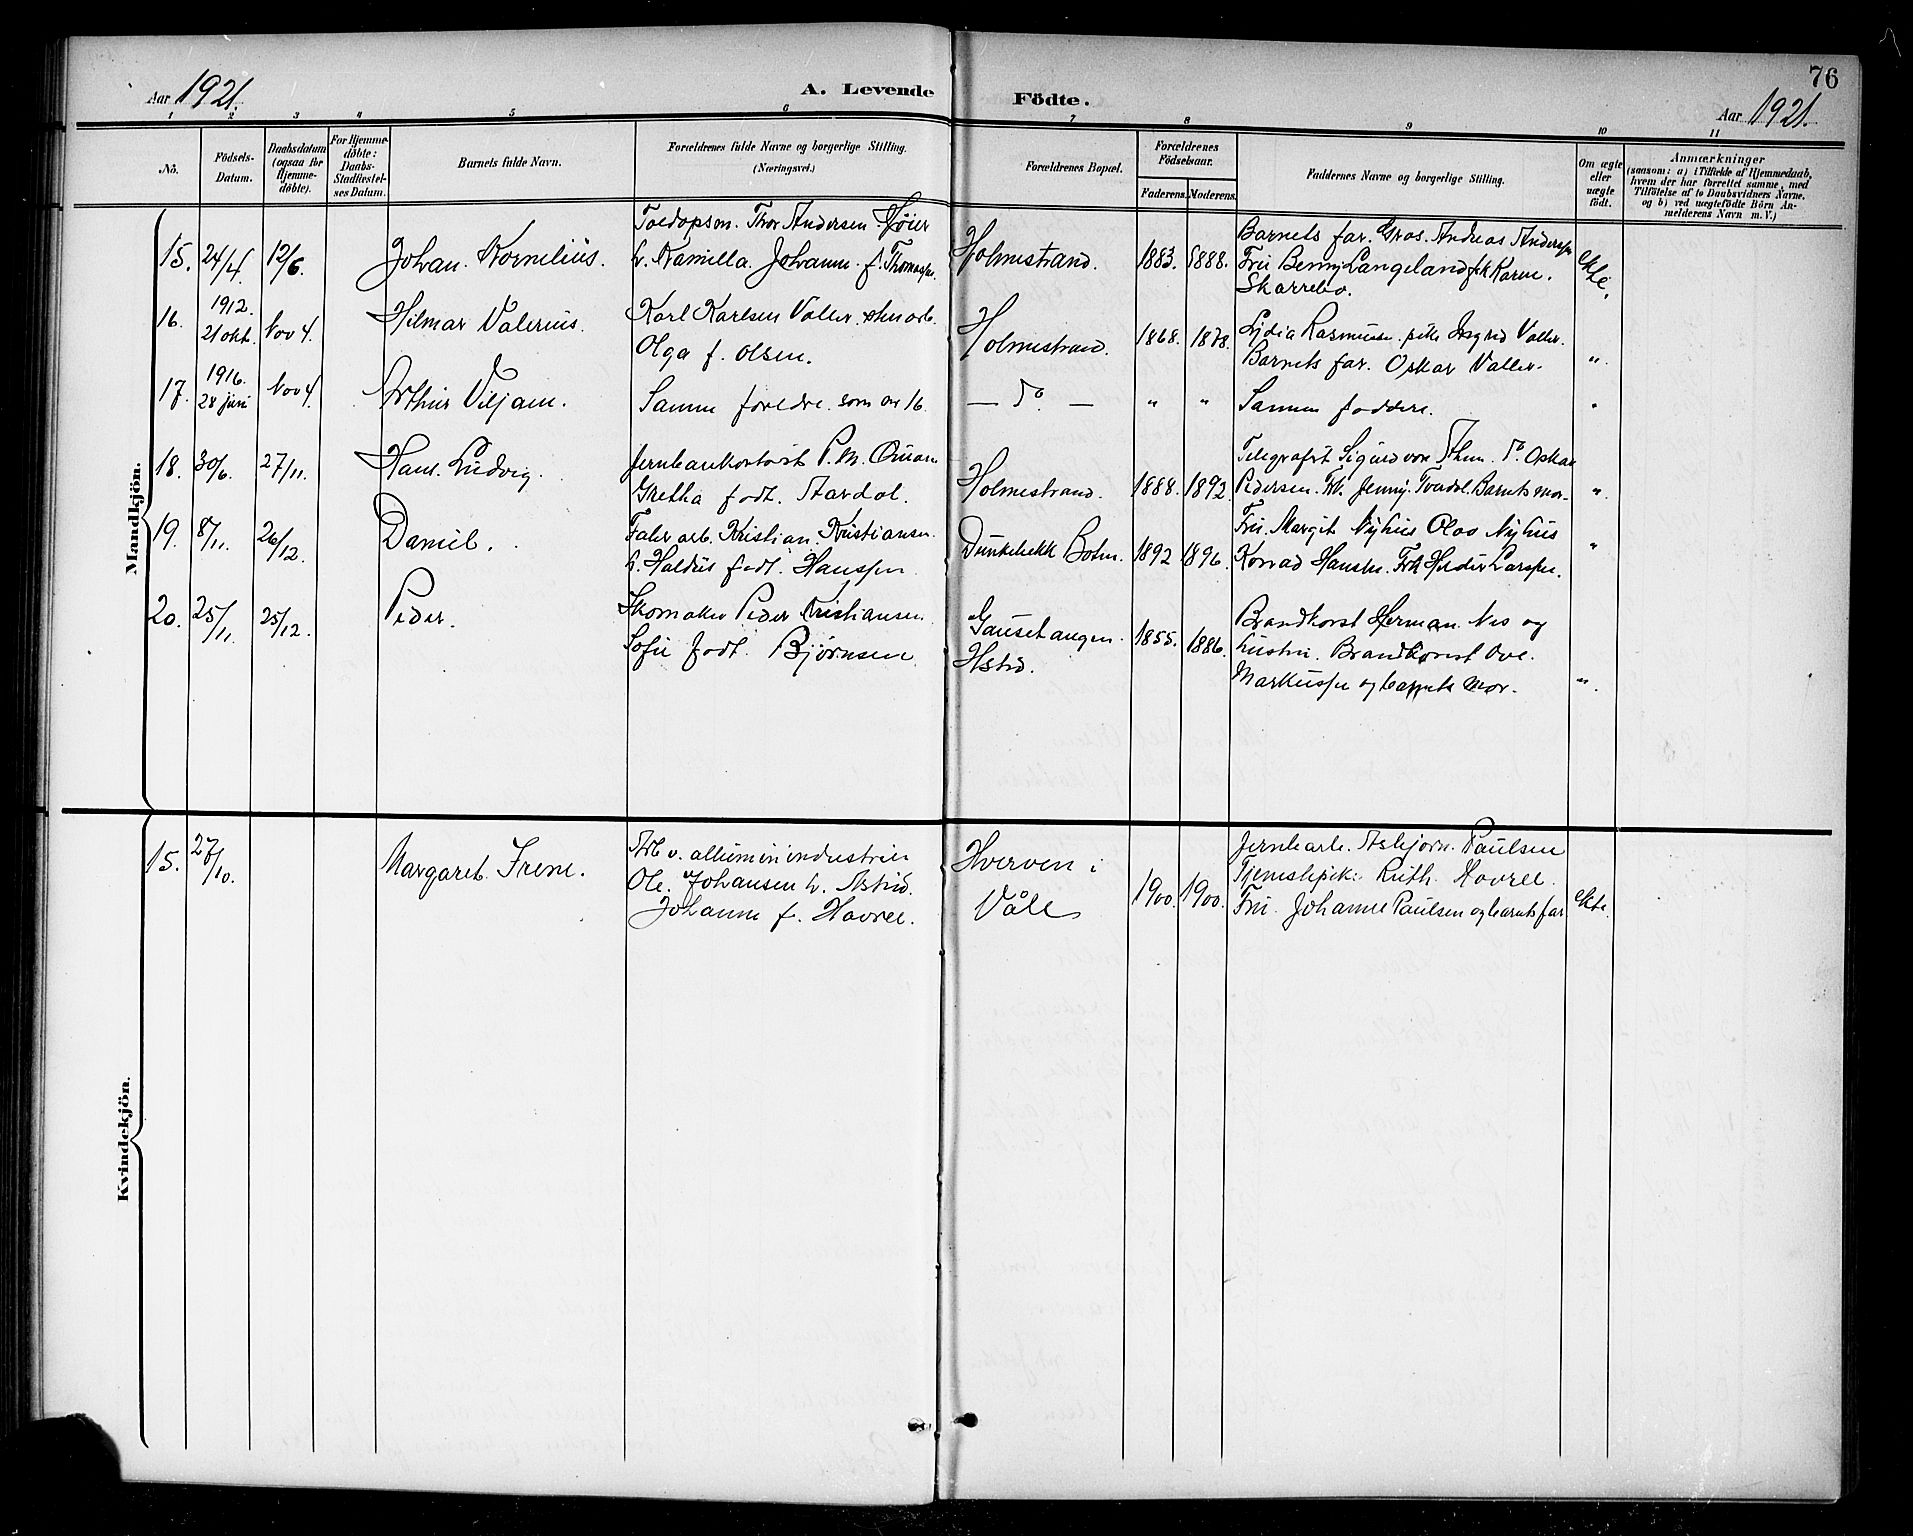 76
Aar 1921.
A. Levende Födte.
Aar 1921.
1 2 3 4 5 6 7 8 9 10 11
No.
Födsels-Datum.
Daabsdatum (ogsaa for Hjemme-döbte).
For Hjemme-döbte: Daabs-Stadfæstel-ses Datum.
Barnets fulde Navn.
Forældrenes fulde Navne og borgerlige Stilling. (Næringsvei.)
Forældrenes Bopæl.
Forældrenes Födselsaar.
Faderens. Moderens.
Faddernes Navne og borgerlige Stilling.
Om ægte eller uægte födt.
Anmærkninger
(saasom: a) i Tilfælde af Hjemmedaab,
hvem der har forrettet samme, med
Tilföielse af to Daabsvidners Navne,
og b) ved uægtefödte Börn An-
melderens Navn m. V.)
Mandkjön.
15. 24/4 12/6 Johan Kornelius.
Toldopsm. Thor Andersen Höier
h. Kamilla Johanne f. Thomassen
Holmestrand. 1883. 1888.
Barnets far. Gros. Andreas Anderssen
Fru Benny Langeland frk Karen
Skarrebo.
ekte.
16. 1912. 21 okt. Nov 4. Hilmar Valerius.
Karl Karlsen Valler
Olga f. Olsen.
Holmestrand. 1868. 1878.
Lydia Rasmussen pike Ingrid Valler.
Barnets far. Oskar Valler.
"
17. 1916. 28 juni Nov 4. Arthur Viljam.
Samme foreldre som nr 16.
— Do — " "
Samme faddere.
"
18. 30/6 27/11. Hans Ludvig.
P. M.
Gretha født
Holmestrand. 1888. 1892.
Telegrafist Sigurd von Do Oskar
Pedersen. Frk. Jenny Barnets mor.
"
19. 8/11. 26/12. Daniel.
arb. Kristian Kristiansen
h. født Hanssen
Dunkebekk Botne. 1892 1896.
Fru Margit Nyhus Olav Nyhus
Konrad Hansen. Frk Larssen.
"
20. 25/11. 25/12. Peder.
Skomaker Peder Kristiansen
Sofie født Bjørnsen
Gausetangen
Hstrd.
1855. 1886.
Brandkonst Herman Nes og
hustru. Brandkonst Ove
Markussen og barnets mor.
"
Kvindekjön.
15. 27/10. Margaret Irene.
Arb v. alluminindustrien
Ole Johansen h. Astrid
Johanne f. Havree.
Hverven i
Våle
1900. 1900.
Jernbarb. Asbjørn Paulsen
Tjenestepik: Ruth Havree.
Fru Johanne Paulsen og barnets far
ekte.